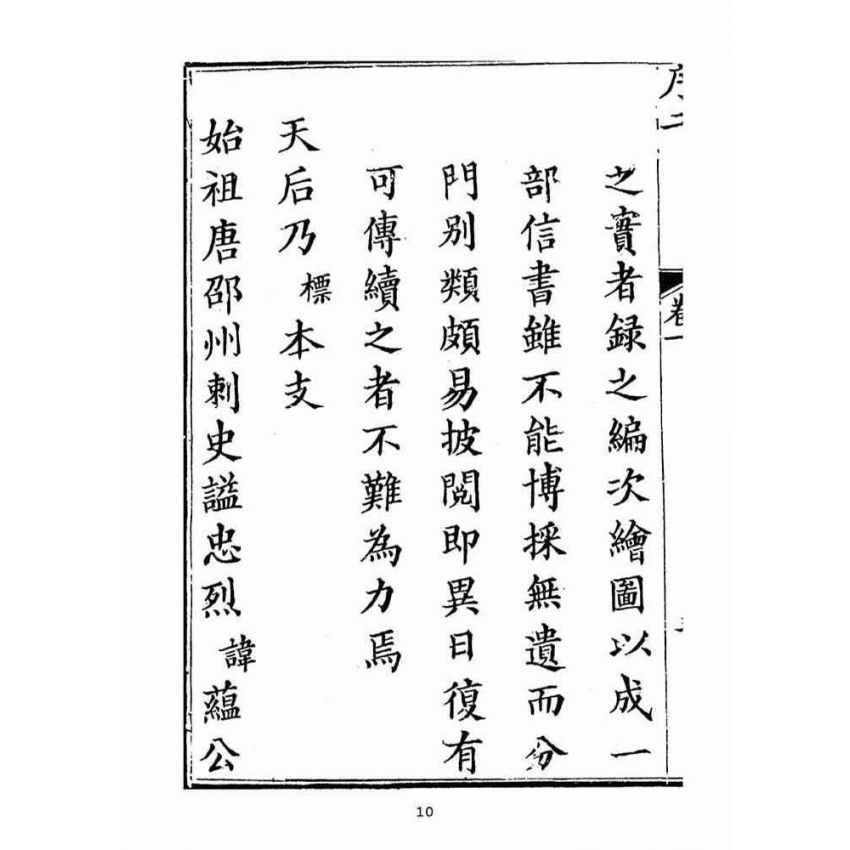 序二
卷一
之實者録之編次繪圖以成一
部信書雖不能博採無遺而分
門别類頗易披閱即異日復有
可傳續之者不難為力焉
天后乃標本支
始祖唐邵州刺史謚忠烈諱蘊公
10